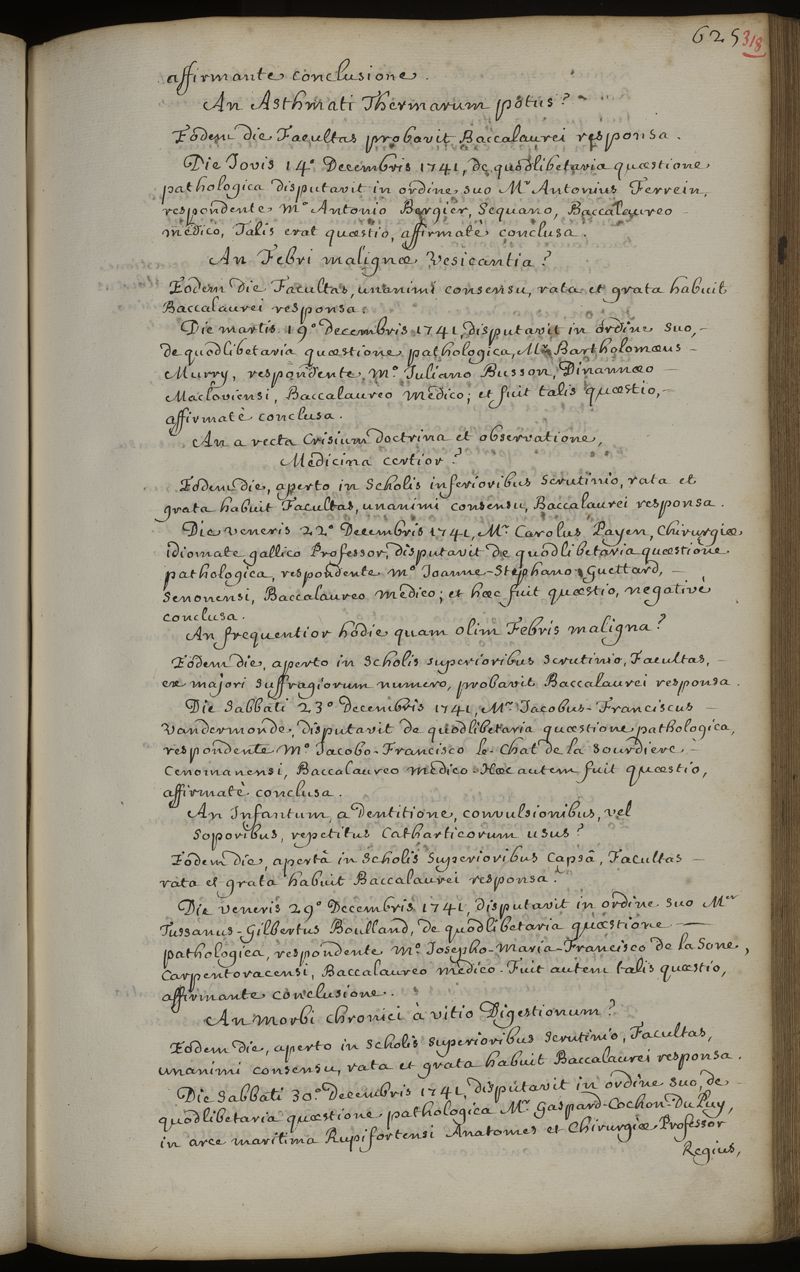 625 318
affirmante conclusione.
An Asthmati Thermarum potus?
Eodem die Facultas probavit Baccalaurei responsa.
Die Jovis 14.ª Decembris 1741, de quodlibetaria quæstione
pathologica disputavit in ordine suo M.r Antonius Ferrein,
respondente M.º Antonio Bergier, Sequano, Baccalaureo
medico, Talis erat quæstio, affirmatè conclusa.
An Febri malignæ Vesicantia?
Eodem die Facultas, unanimi consensu, rata et grata habuit
Baccalaurei responsa.
Die martis 19.ª Decembris 1741, disputavit in ordine suo,
de quodlibetaria quæstione pathologica, M.r Bartholomæus
Murry, respondente M.º Juliano Busson, Dinannæo
Macloviensi, Baccalaureo medico; et fuit talis quæstio,
affirmatè conclusa.
An a recta Crisium doctrina et observatione,
Medicina certior?
Eodem die, aperto in Scholis inferioribus Scrutinio, rata et
grata habuit Facultas, unanimi consensu, Baccalaurei responsa.
Die veneris 22.ª Decembris 1741, M.r Carolus Payen, Chirurgiæ
idiomate gallico Professor, disputavit de quodlibetaria quæstione
pathologica, respondente M.º Joanne-Stephano Guettard,
Senonensi, Baccalaureo medico; et hæc fuit quæstio, negativè
conclusa.
An frequentior hodie quam olim Febris maligna?
Eodem die, aperto in Scholis superioribus Scrutinio, Facultas,
ex majori Suffragiorum numero, probavit Baccalaurei responsa.
Die Sabbati 23.º decembris 1741, M.r Jacobus-Franciscus
Vandermonde, disputavit de quodlibetaria quæstione pathologica,
respondente M.º Jacobo-Francisco le-Chat de la Sourdiere
Cenomanensi, Baccalaureo medico. Hæc autem fuit quæstio,
affirmatè conclusa.
An Infantum, a Dentitione, convulsionibus, vel
Soporibus, repetitus Catharticorum usus?
Eodem die, apertâ in Scholis Superioribus Capsâ, Facultas
rata et grata habuit Baccalaurei responsa.
Die veneris 29.º Decembris 1741, disputavit in ordine suo M.er
Tussanus-Gilbertus Boulland, de quodlibetaria quæstione
pathologica, respondente M.º Josepho-Maria-Francisco de la Sone,
Carpentoracensi, Baccalaureo medico. Fuit autem talis quæstio,
affirmante conclusione.
An Morbi chronici à vitio Digestionum?
Eodem die, aperto in Scholis Superioribus Scrutinio, Facultas,
unanimi consensu, rata et grata habuit Baccalaurei responsa.
Die Sabbati 30.º Decembris 1741, disputavit in ordine suo, de
quodlibetaria quæstione pathologica M.r Gaspard-Cochon-DuPuy,
in arce maritima Rupifortensi Anatomes et Chirurgiæ Professor
Regius,